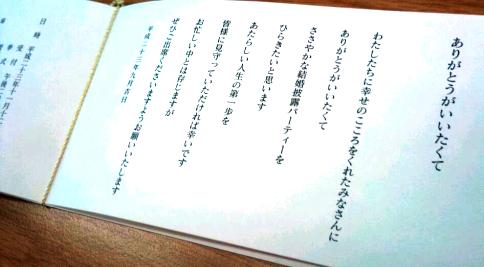 ありがとうがいいたくて
わたしたちに幸せのこころをくれたみなさんに
ありがとうがいいたくて
ささやかな結婚披露パーティーを
ひらきたいと思います
あたらしい人生の第一歩を
皆様に見守っていただければ幸いです
お忙しい中とは存じますが
ぜひご出席くださいますようお願いいたします
平成二十三年九月吉日
日時 平成二十三年十一月十二
受付 午前
挙式 午後